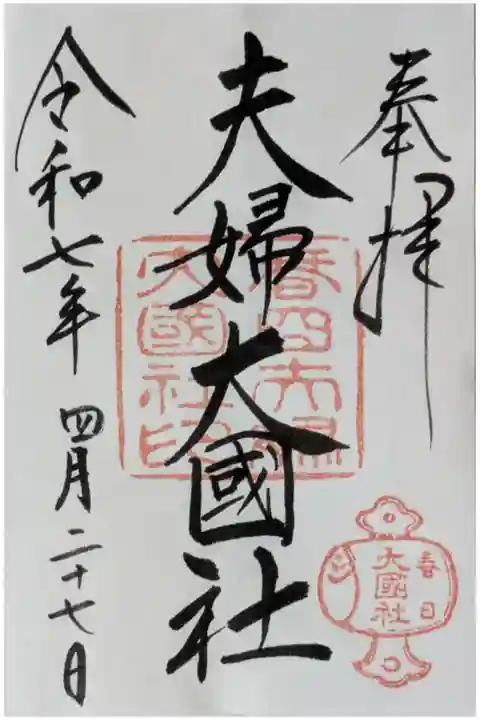 奉拝
夫婦大國社
令和七年 四月二十七日
春日夫婦
大國社印
春日
大國社